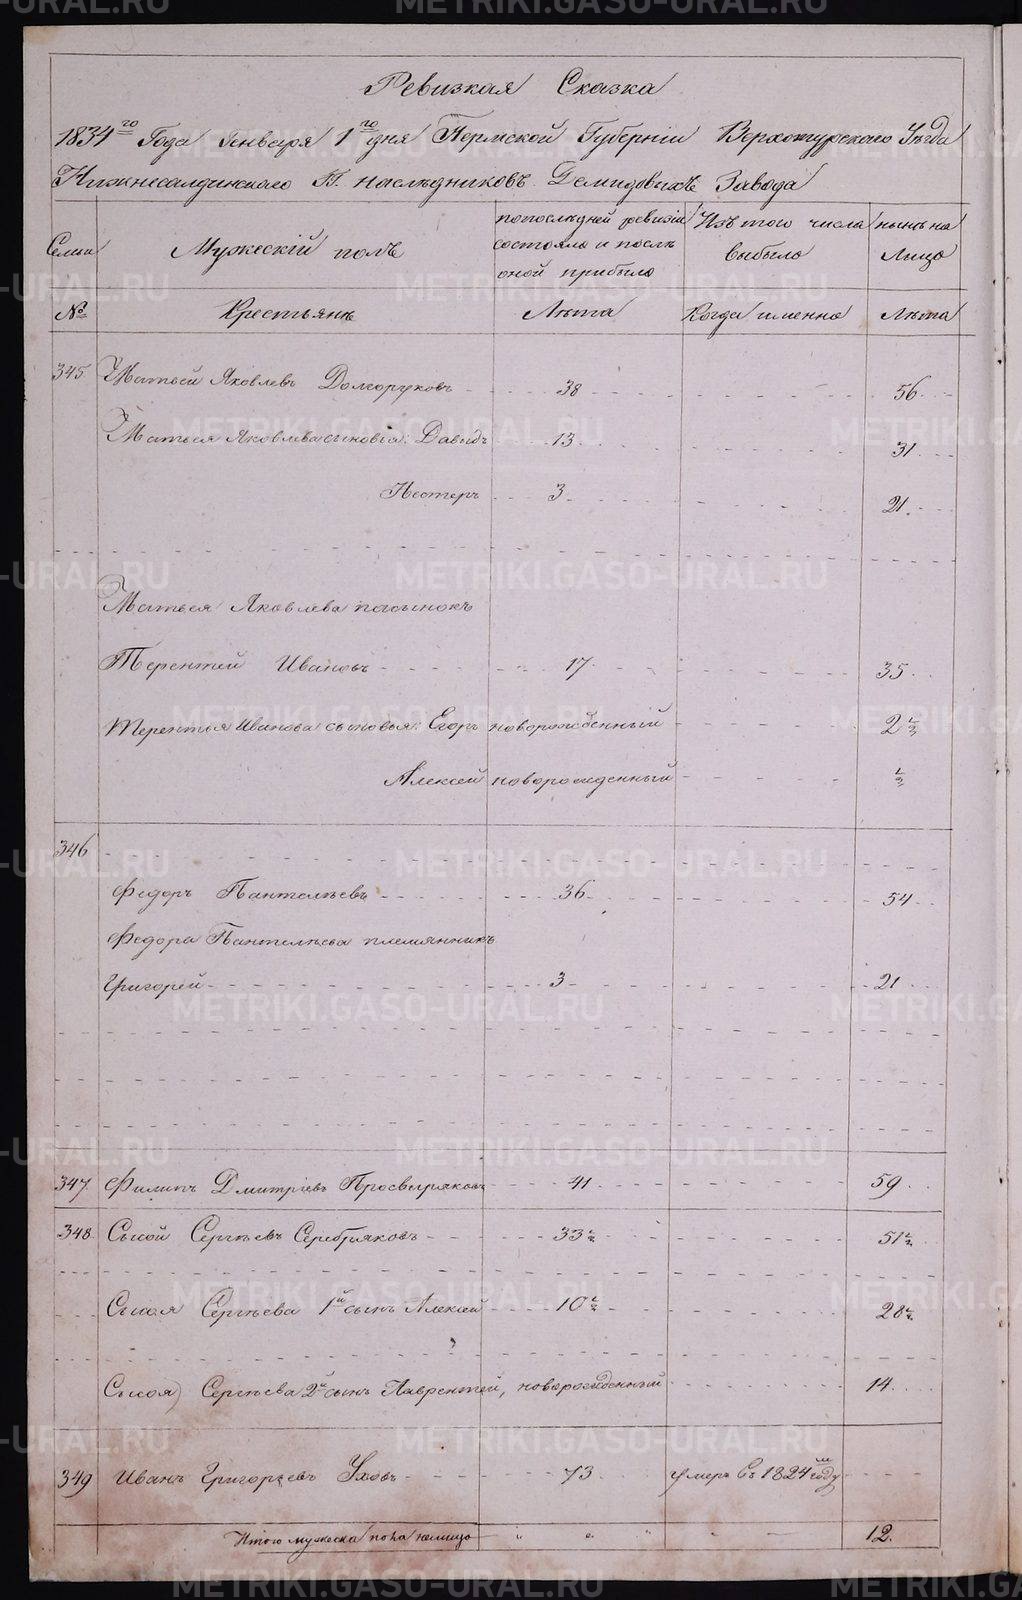 Ревизкая Сказка
1834го Года Генваря 1го дня Пермской Губернiи Верхотурскаго Уѣзда
Нижнесалдинскаго Г. наслѣдниковъ Демидовыхъ Завода
Семьи
Мужескiй полъ
попослѣдней ревизiи состояло и послѣ оной прибыло
Изъ того числа выбыло
нынѣ на Лицо
№
Крестьянъ
Лѣта
Когда именно
Лѣта
345 Матвей Яковлевъ Долгоруковъ 38 56
Матвея Яковлева сыновiя: Давыдъ 13 31
Нестеръ 3 21
Матвея Яковлева пасынокъ
Терентей Ивановъ 17 35
Терентья Иванова сыновья: Егоръ новорожденный 2 ½
Алексей новорожденный ½
346
Федоръ Пантелѣевъ 36 54
Федора Пантелѣева племянникъ
Григорей 3 21
347 Филипъ Дмитрiевъ Просвиряковъ 41 59
348 Сысой Сергѣевъ Серебряковъ 33 ½ 51 ½
Сысоя Сергѣева 1й сынъ Алексей 10 ½ 28 ½
Сысоя Сергѣева 2й сынъ Лаврентей, новорожденный 14
349 Иванъ Григорьевъ Уховъ 73 умеръ Въ 1824м году
Итого мужеска пола налицо 12.
METRIKI.GASO-URAL.RU